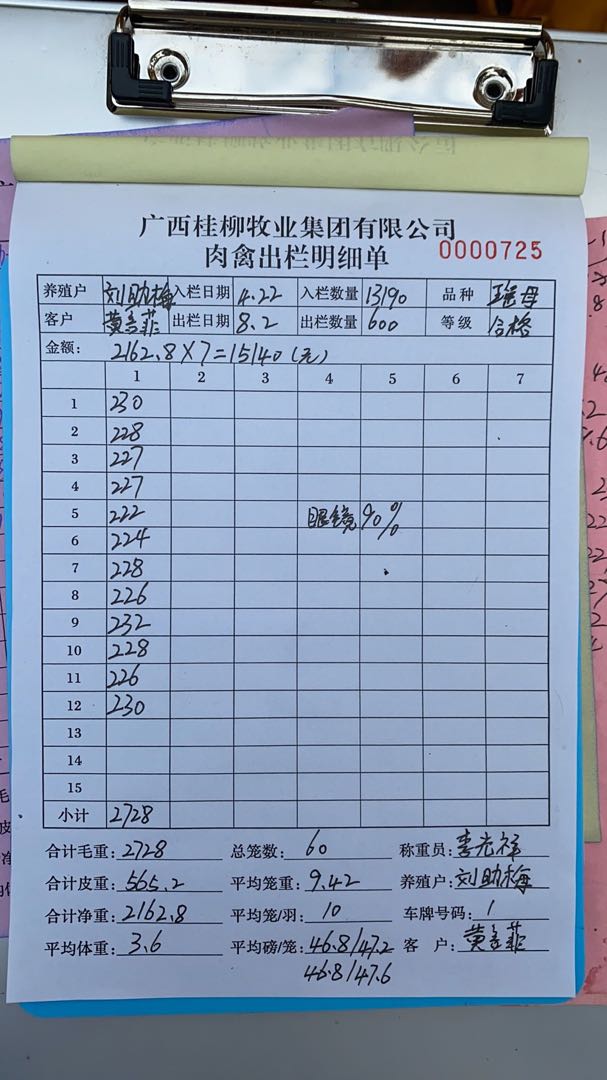 广西桂柳牧业集团有限公司
肉禽出栏明细单 0000725
养殖户 刘助梅 入栏日期 4.22 入栏数量 13190 品种 瑶母
客户 黄 菲 出栏日期 8.2 出栏数量 600 等级 合格
金额: 2162.8×7=15140(元)
1 2 3 4 5 6 7
1 230
2 228
3 227
4 227
5 222 眼镜90%
6 224
7 228
8 226
9 232
10 228
11 226
12 230
13
14
15
小计 2728
合计毛重: 2728 总笼数: 60 称重员: 李光祥
合计皮重: 565.2 平均笼重: 9.42 养殖户: 刘助梅
合计净重: 2162.8 平均笼/羽: 10 车牌号码: 1
平均体重: 3.6 平均磅/笼: 46.8/47.2 客 户: 黄 菲
46.8/47.6